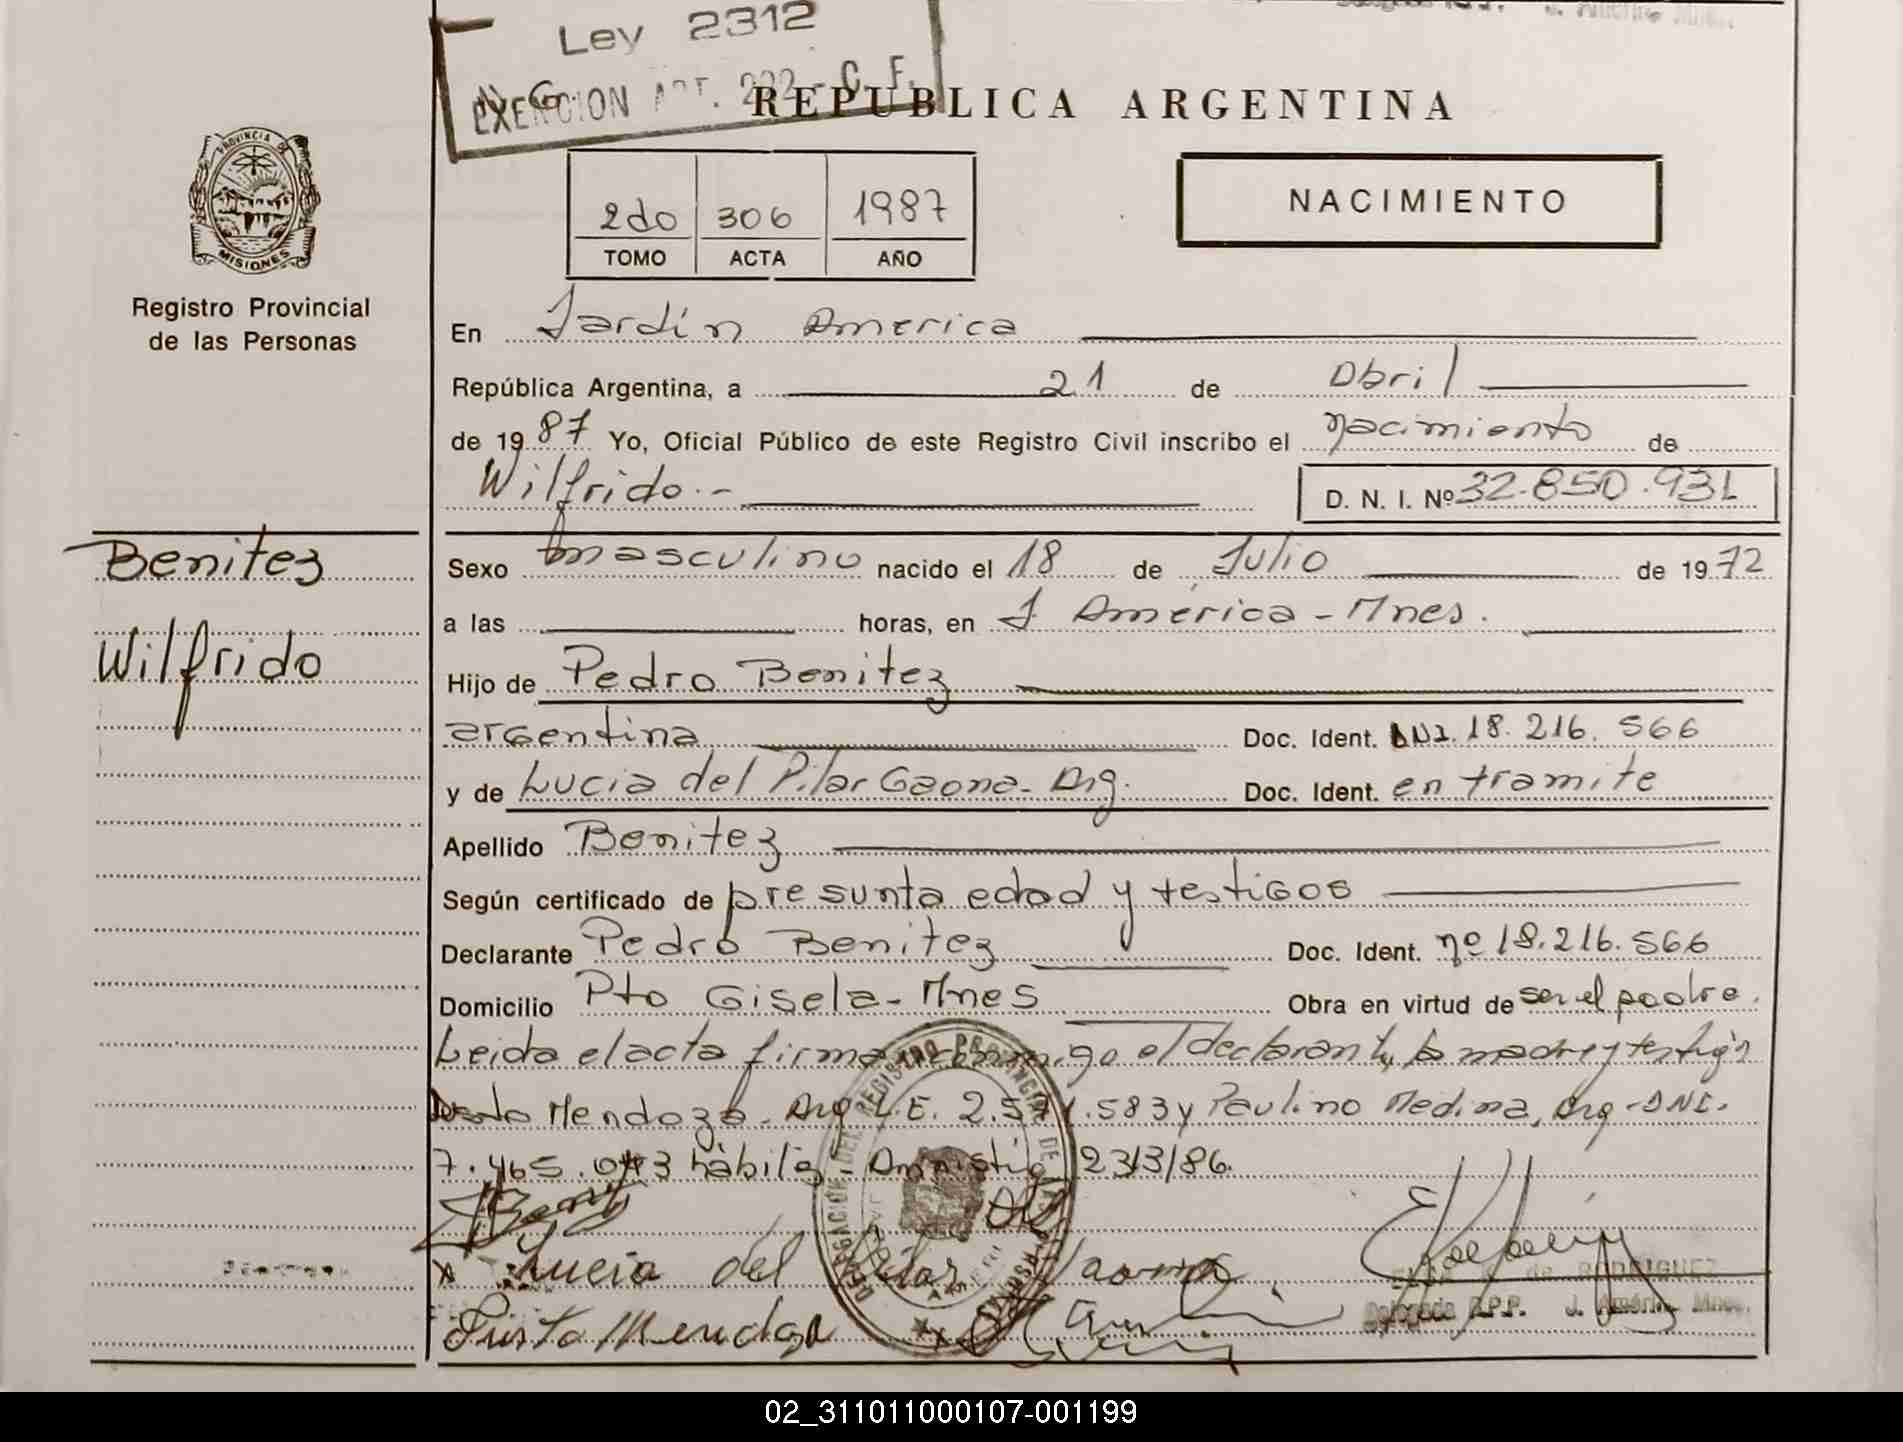 Ley 2312
EXENCION ART. 222 - C. F.
REPUBLICA ARGENTINA
PROVINCIA DE
MISIONES
Registro Provincial
de las Personas
2do 306 1987
TOMO ACTA AÑO
NACIMIENTO
En Jardín America
República Argentina, a 21 de Abril
de 1987 Yo, Oficial Público de este Registro Civil inscribo el nacimiento de
Wilfrido.- D. N. I. Nº 32.850.931
Benitez
Wilfrido
Sexo masculino nacido el 18 de Julio de 1972
a las horas, en J. América - Mnes.
Hijo de Pedro Benitez
argentina Doc. Ident. DNI. 18.216.566
y de Lucia del Pilar Gaona - Arg. Doc. Ident. en tramite
Apellido Benitez
Según certificado de presunta edad y testigos
Declarante Pedro Benitez Doc. Ident. nº 18.216.566
Domicilio Pto Gisela - Mnes Obra en virtud de ser el padre.
Leida el acta firma conmigo el declarante, la madre y testigos
Mendoza, Arg L.E. y Paulino Medina, Arg - DNI.
hábiles. Amnistía 23/3/86.
Lucia del Pilar Gaona
Justo Mendoza
DE RODRIGUEZ
Delegada R.P.P. J. América Mnes.
02_311011000107-001199